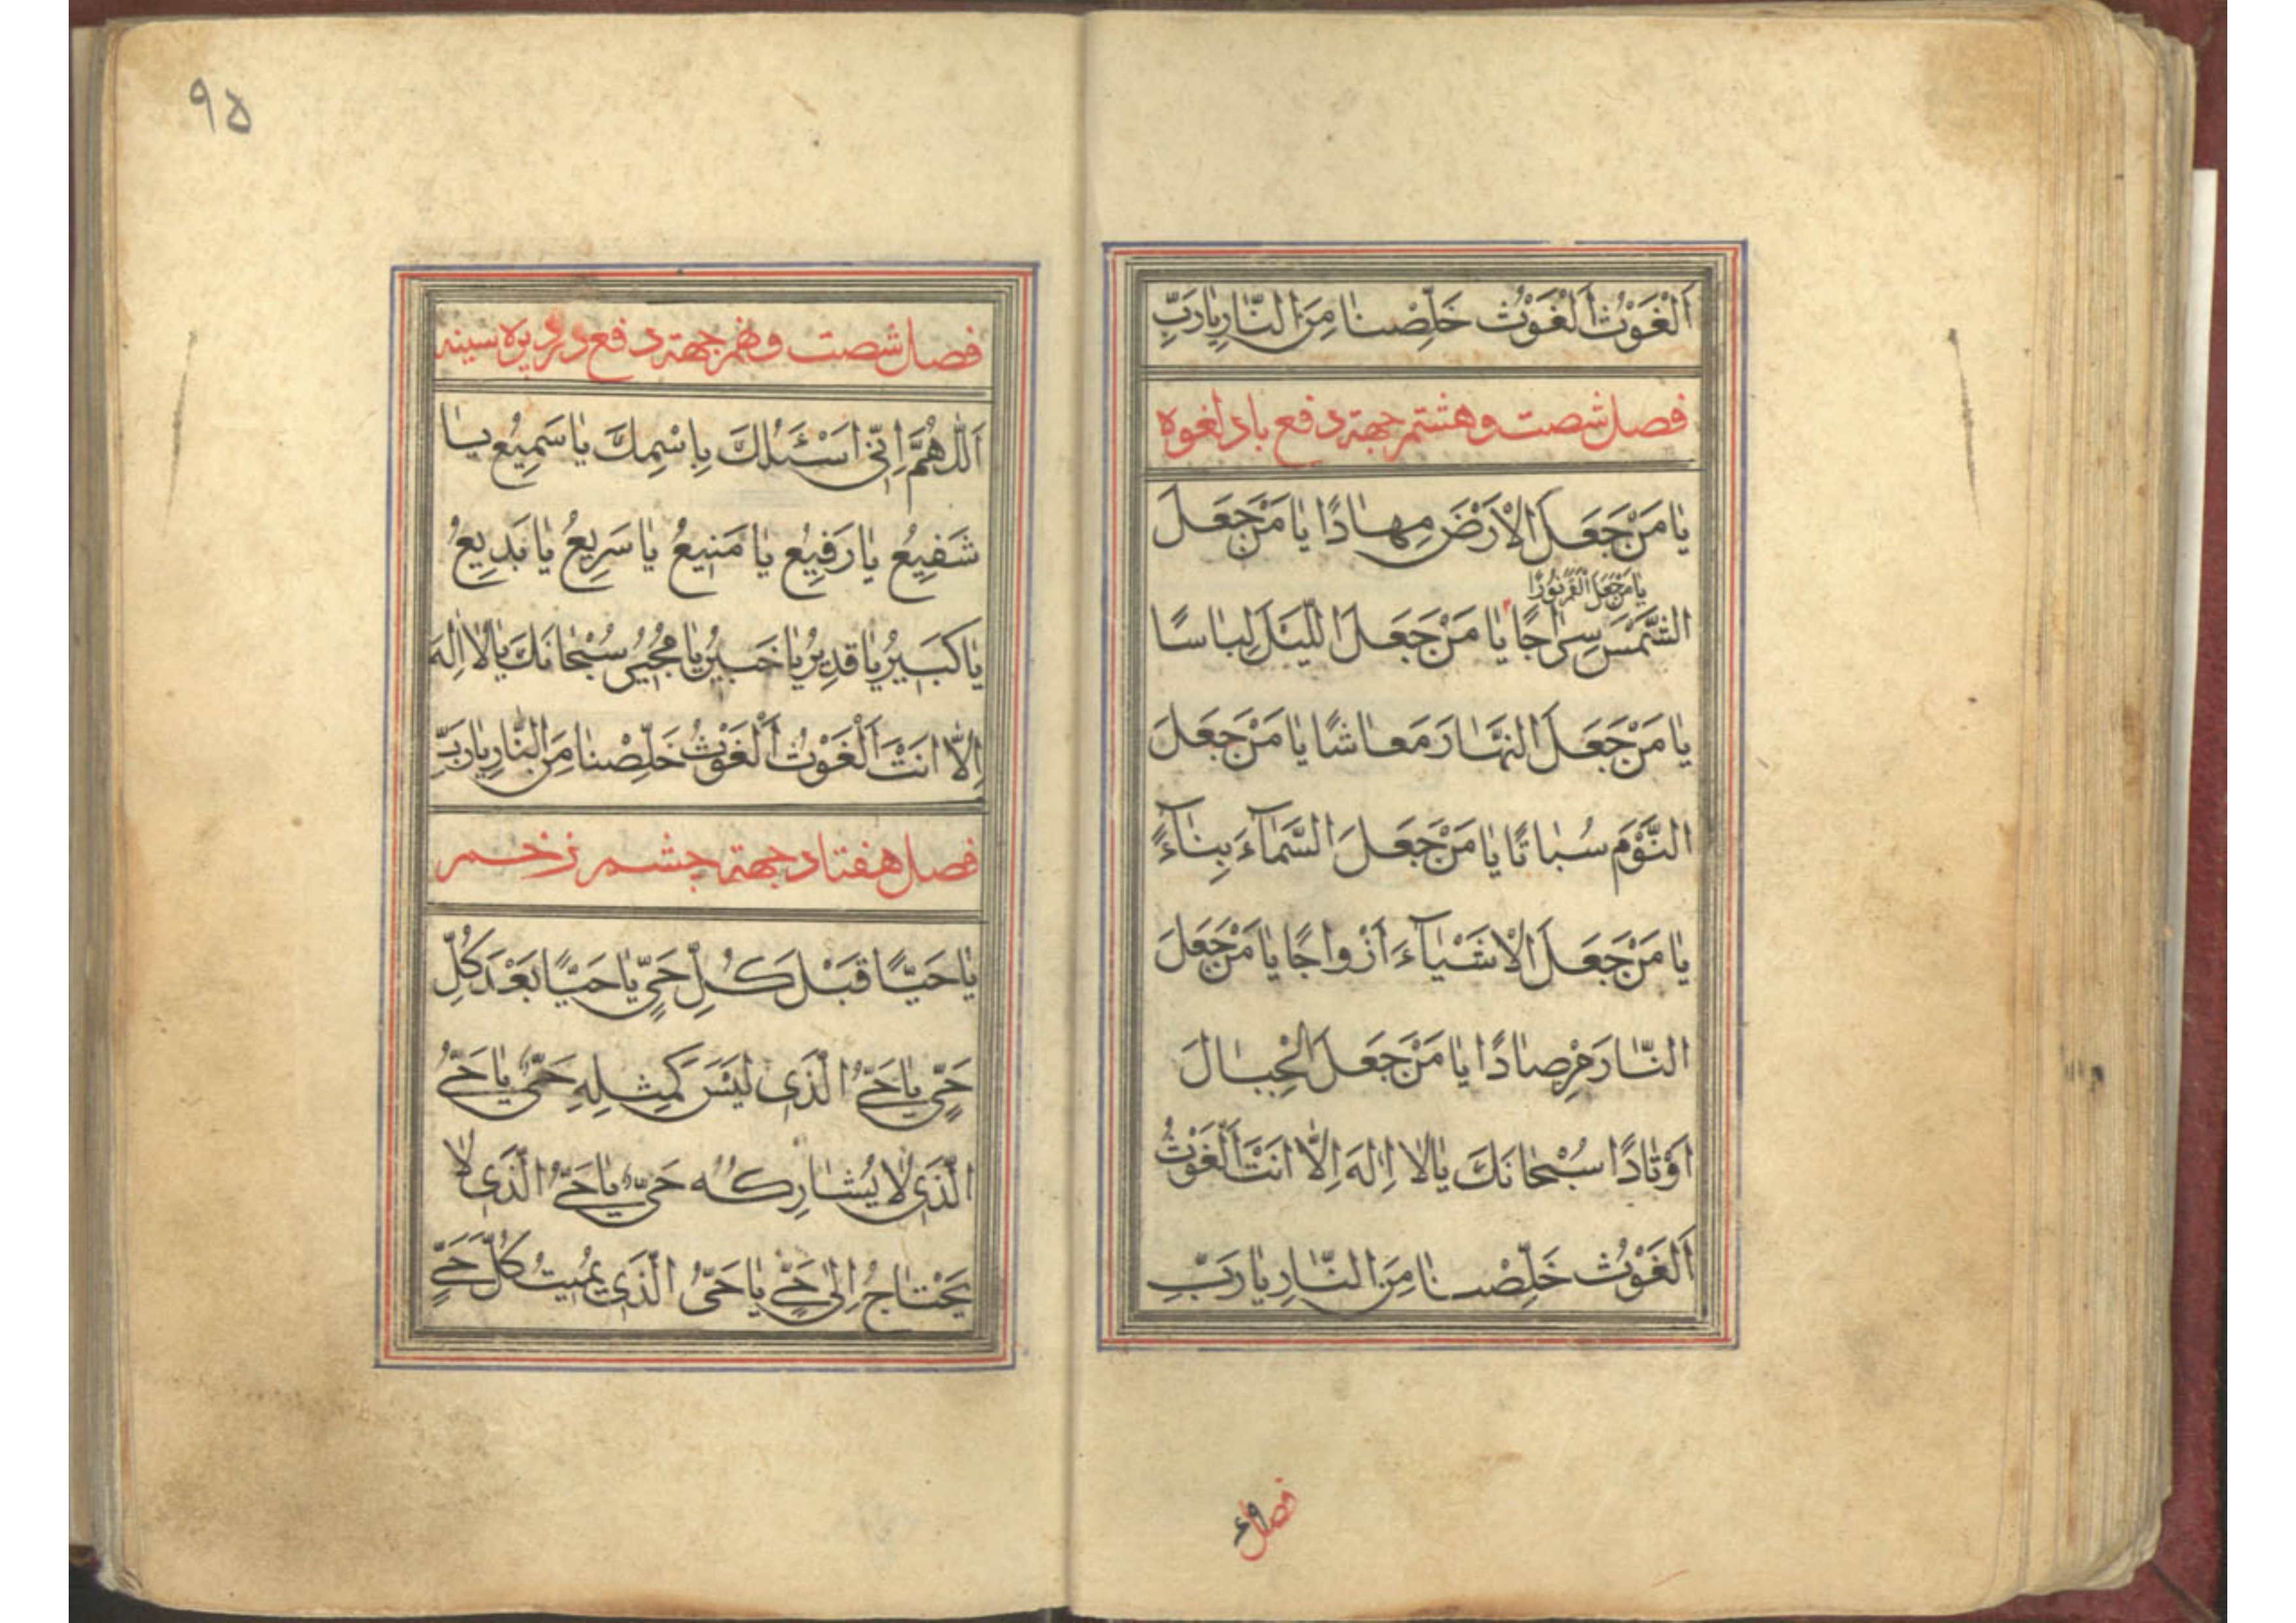 اَلْغَوْثُ اَلْغَوْثُ خَلِّصْنا مِنَ النّارِ يا رَبِّ
فصل شصت و هشتم جهة دفع باد لغوه
يا مَنْ جَعَلَ الْاَرْضَ مِهادًا يا مَنْ جَعَلَ
يا مَنْ جَعَلَ الْقَمَرَ نُورًا
الشَّمْسَ سِراجًا يا مَنْ جَعَلَ اللَّيْلَ لِباسًا
يا مَنْ جَعَلَ النَّهارَ مَعاشًا يا مَنْ جَعَلَ
النَّوْمَ سُباتًا يا مَنْ جَعَلَ السَّمآءَ بِنآءً
يا مَنْ جَعَلَ الْاَشْيآءَ اَزْواجًا يا مَنْ جَعَلَ
النّارَ مِرْصادًا يا مَنْ جَعَلَ الْجِبالَ
اَوْتادًا سُبْحانَكَ يا لا اِلهَ اِلّا اَنْتَ اَلْغَوْثُ
اَلْغَوْثُ خَلِّصْنا مِنَ النّارِ يا رَبِّ
فصل
٩٥
فصل شصت و نهم جهة دفع درد پره سينه
اَللّهُمَّ اِنّى اَسْئَلُكَ بِاسْمِكَ يا سَميعُ يا
شَفيعُ يا رَفيعُ يا مَنيعُ يا سَريعُ يا بَديعُ
يا كَبيرُ يا قَديرُ يا خَبيرُ يا مُجيرُ سُبْحانَكَ يا لا اِلهَ
اِلّا اَنْتَ اَلْغَوْثُ اَلْغَوْثُ خَلِّصْنا مِنَ النّارِ يا رَبِّ
فصل هفتاد جهة چشم زخم
يا حَيًّا قَبْلَ كُلِّ حَىٍّ يا حَيًّا بَعْدَ كُلِّ
حَىٍّ يا حَىُّ الَّذى لَيْسَ كَمِثْلِهِ حَىٌّ يا حَىُّ
الَّذى لا يُشارِكُهُ حَىٌّ يا حَىُّ الَّذى لا
يَحْتاجُ اِلى حَىٍّ يا حَىُّ الَّذى يُميتُ كُلَّ حَىٍّ